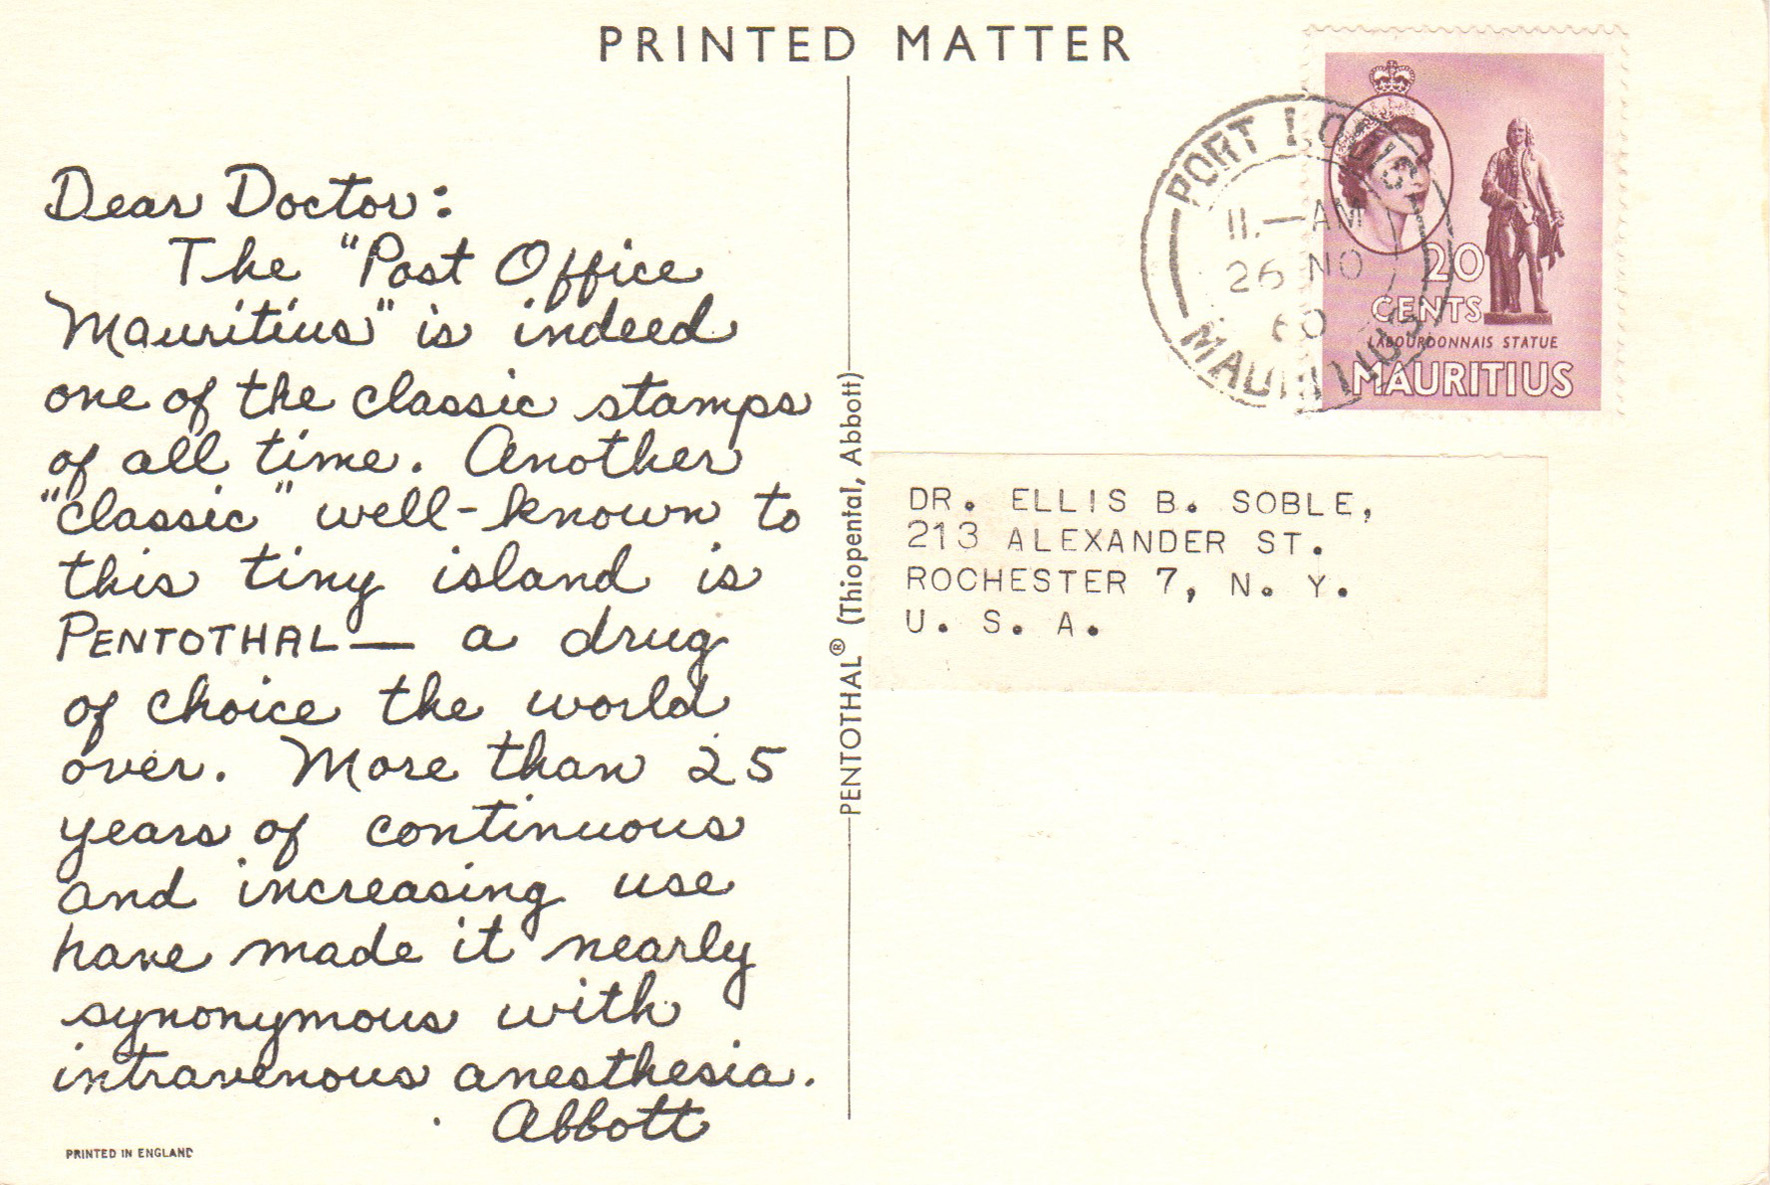 PRINTED MATTER
Dear Doctor:
The "Post Office
Mauritius" is indeed
one of the classic stamps
of all time. Another
"classic" well-known to
this tiny island is
PENTOTHAL— a drug
of choice the world
over. More than 25
years of continuous
and increasing use
have made it nearly
synonymous with
intravenous anesthesia.
Abbott
PRINTED IN ENGLAND
PENTOTHAL® (Thiopental, Abbott)
PORT LOUIS
11.—AM
26 NO
60
MAURITIUS
20
CENTS
LABOURDONNAIS STATUE
MAURITIUS
DR. ELLIS B. SOBLE,
213 ALEXANDER ST.
ROCHESTER 7, N. Y.
U. S. A.